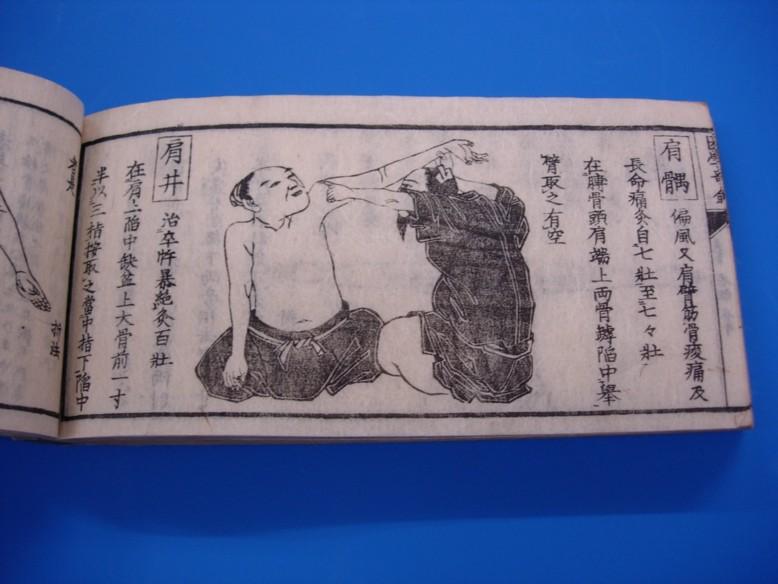 肩髃 偏風又肩臂筋骨痠痛及
長命痛灸自七壯至七々壯
在膊骨頭肩端上兩骨罅陷中舉
臂取之有空
肩井 治卒忤暴絕灸百壯
在肩上陷中缺盆上大骨前一寸
半以三指按取之當中指下陷中